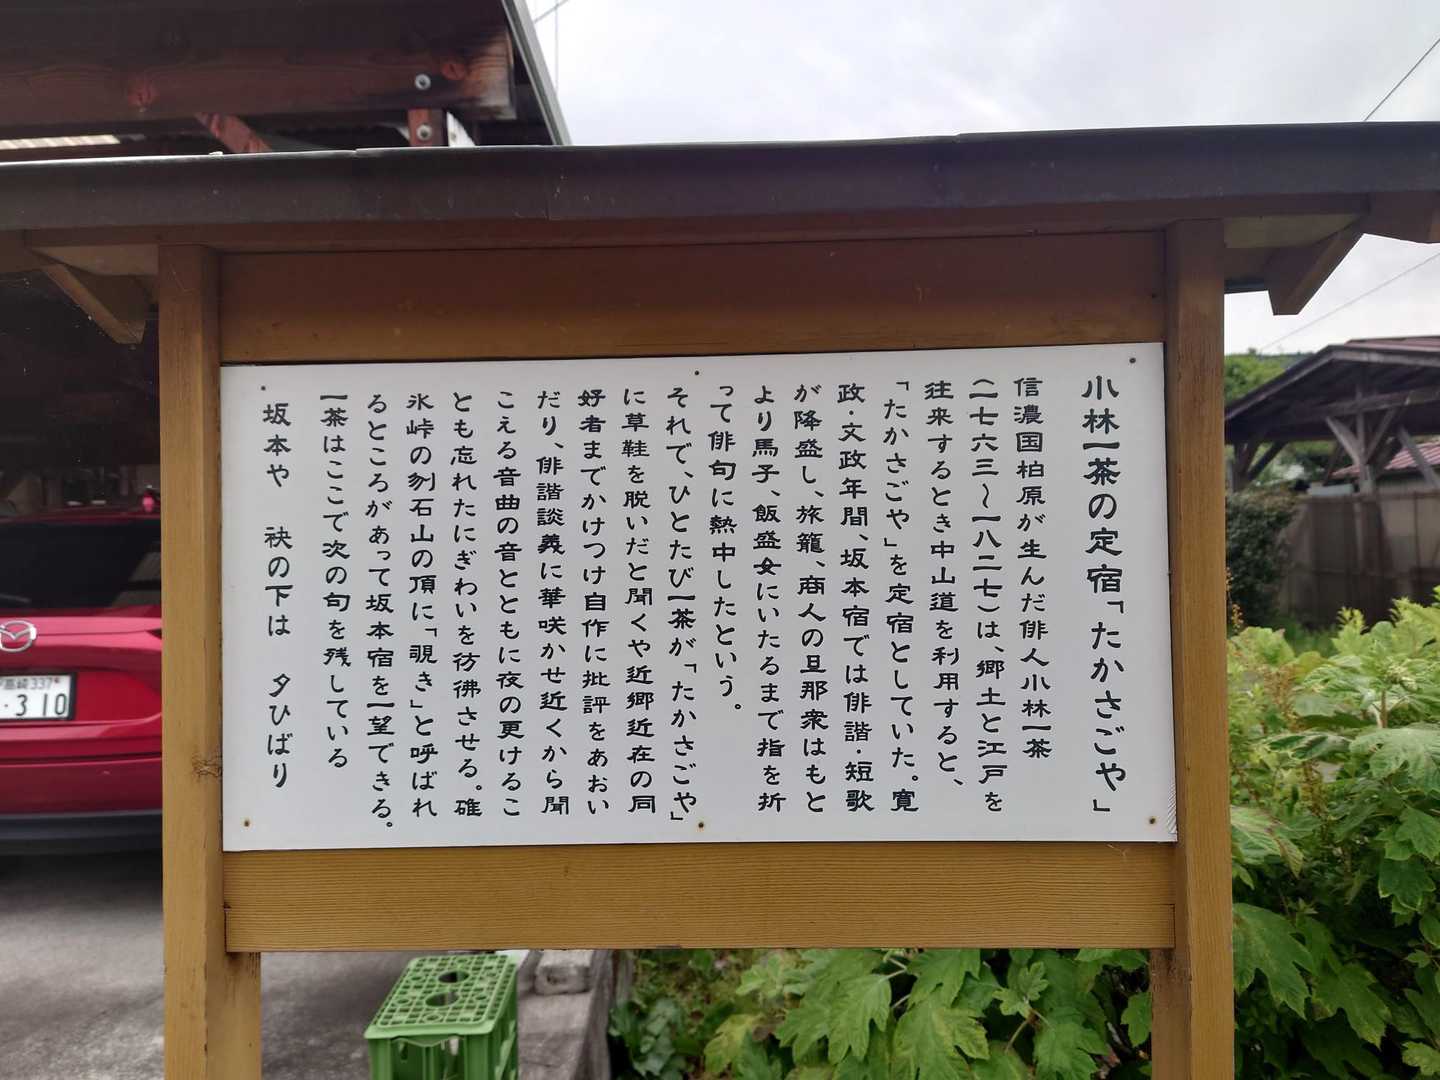 小林一茶の定宿「たかさごや」
信濃国柏原が生んだ俳人小林一茶
(一七六三〜一八二七)は、郷土と江戸を
往来するとき中山道を利用すると、
「たかさごや」を定宿としていた。寛
政・文政年間、坂本宿では俳諧・短歌
が隆盛し、旅籠、商人の旦那衆はもと
より馬子、飯盛女にいたるまで指を折
って俳句に熱中したという。
それで、ひとたび一茶が「たかさごや」
に草鞋を脱いだと聞くや近郷近在の同
好者までかけつけ自作に批評をあおい
だり、俳諧談義に華咲かせ近くから聞
こえる音曲の音とともに夜の更けるこ
とも忘れたにぎわいを彷彿させる。碓
氷峠の刎石山の頂に「覗き」と呼ばれ
るところがあって坂本宿を一望できる。
一茶はここで次の句を残している
坂本や 袂の下は 夕ひばり
高崎 337
・310